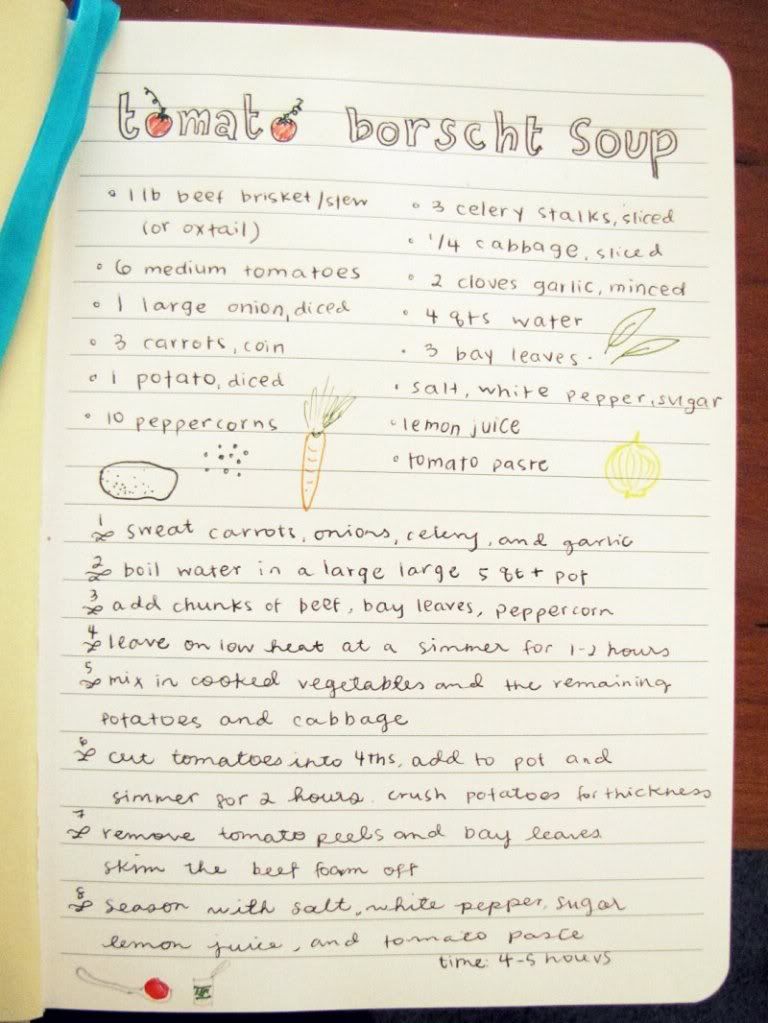 tomato borscht soup
• 1 lb beef brisket/stew
(or oxtail)
• 6 medium tomatoes
• 1 large onion, diced
• 3 carrots, coin
• 1 potato, diced
• 10 peppercorns
• 3 celery stalks, sliced
• 1/4 cabbage, sliced
• 2 cloves garlic, minced
• 4 qts water
• 3 bay leaves.
• salt, white pepper, sugar
• lemon juice
• tomato paste
1 sweat carrots, onions, celery, and garlic
2 boil water in a large large 5 qt + pot
3 add chunks of beef, bay leaves, peppercorn
4 leave on low heat at a simmer for 1-2 hours
5 mix in cooked vegetables and the remaining
potatoes and cabbage
6 cut tomatoes into 4ths, add to pot and
simmer for 2 hours. crush potatoes for thickness
7 remove tomato peels and bay leaves
skim the beef foam off
8 season with salt, white pepper, sugar
lemon juice, and tomato paste
time: 4-5 hours